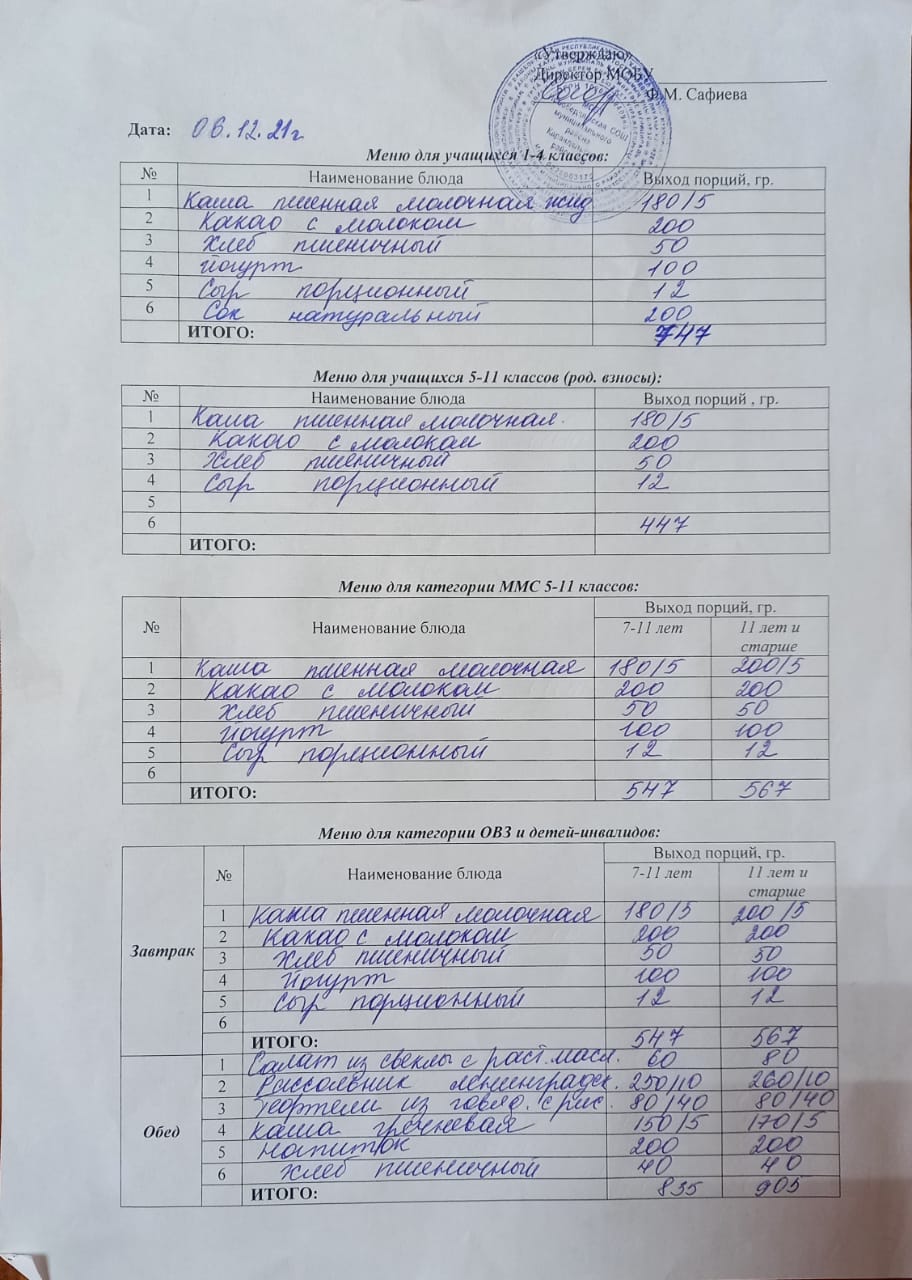 «Утверждаю»
Директор МОБУ
Ф.М. Сафиева
Дата: 06.12.21г
Меню для учащихся 1-4 классов:
№ Наименование блюда Выход порций, гр.
1 Каша пшенная молочная жид 180/5
2 Какао с молоком 200
3 Хлеб пшеничный 50
4 Йогурт 100
5 Сыр порционный 12
6 Сок натуральный 200
ИТОГО: 747
Меню для учащихся 5-11 классов (род. взносы):
№ Наименование блюда Выход порций , гр.
1 Каша пшенная молочная. 180/5
2 Какао с молоком 200
3 Хлеб пшеничный 50
4 Сыр порционный 12
5
6 447
ИТОГО:
Меню для категории ММС 5-11 классов:
№ Наименование блюда Выход порций, гр.
7-11 лет 11 лет и
старше
1 Каша пшенная молочная 180/5 200/5
2 Какао с молоком 200 200
3 Хлеб пшеничный 50 50
4 Йогурт 100 100
5 Сыр порционный 12 12
6
ИТОГО: 547 567
Меню для категории ОВЗ и детей-инвалидов:
№ Наименование блюда Выход порций, гр.
7-11 лет 11 лет и
старше
Завтрак
1 Каша пшенная молочная 180/5 200/5
2 Какао с молоком 200 200
3 Хлеб пшеничный 50 50
4 Йогурт 100 100
5 Сыр порционный 12 12
6
ИТОГО: 547 567
Обед
1 Салат из свеклы с раст. масл. 60 80
2 Рассольник ленинградск. 250/10 260/10
3 Тефтели из говяд. с рис. 80/40 80/40
4 Каша гречневая 150/5 170/5
5 Напиток 200 200
6 Хлеб пшеничный 40 40
ИТОГО: 835 905